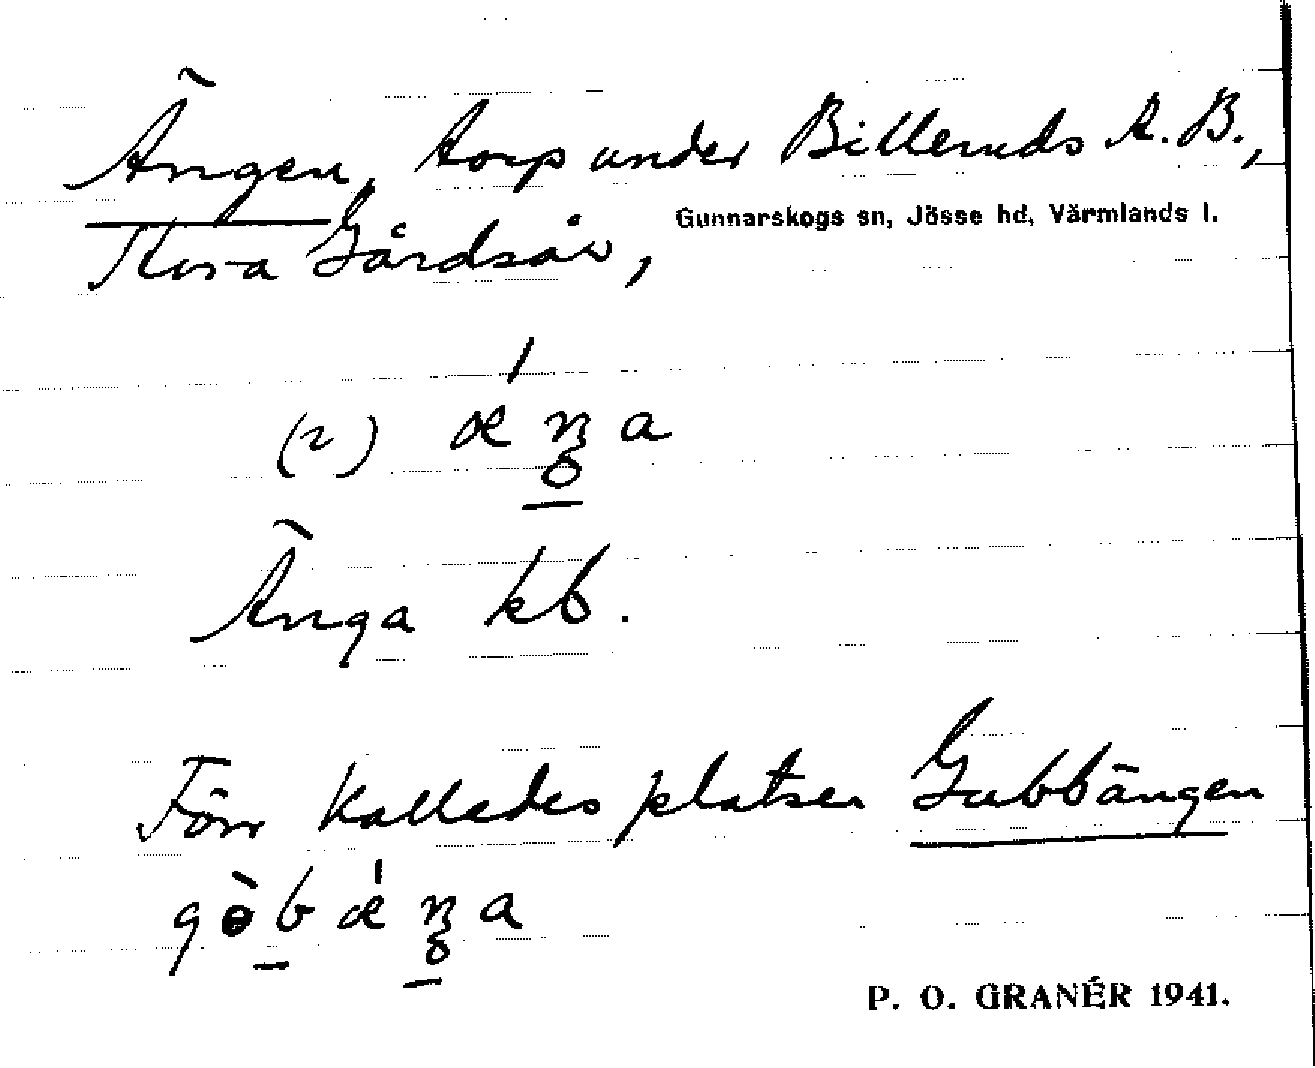 Ängen, torp under Billeruds A.B.,
Gunnarskogs sn, Jösse hd, Värmlands l.
Stora Gårdsås,
(2) ǽŋa
Änga kb.
Förr kallades platsen Gubbängen
P. O. GRANÉR 1941.